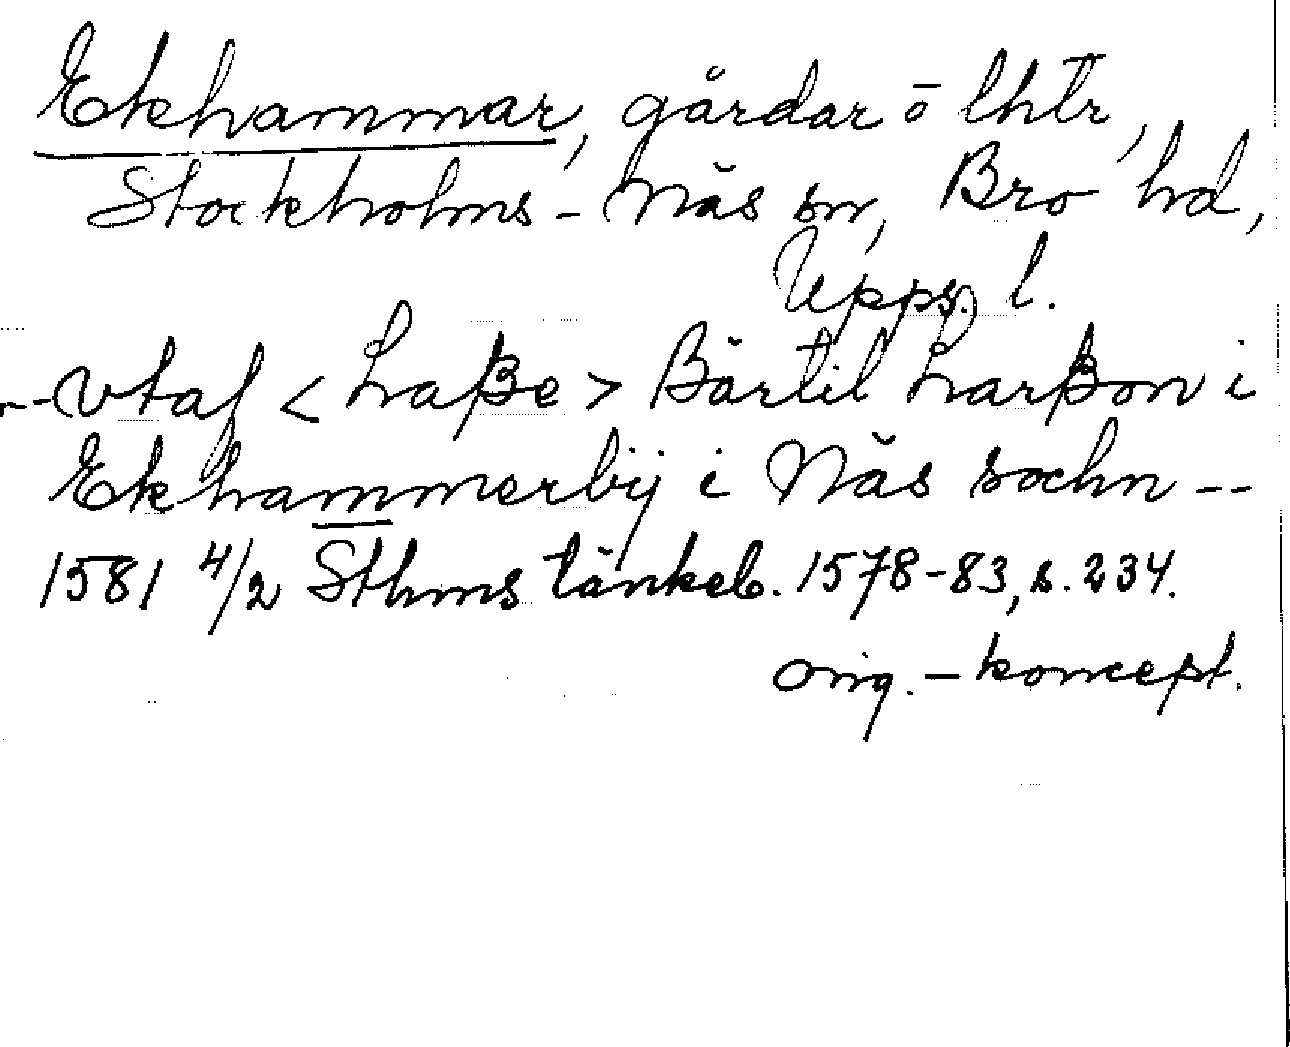 Ekhammar, gårdar o lhtr,
Stockholms-Näs sn, Bro hd,
Upps. l.
--vtaf <Laße> Bärtil Larßon i
Ekhammerbij i Näs sochn --
1581 4/2 Sthms tänkeb. 1578-83, s. 234.
orig.-koncept.